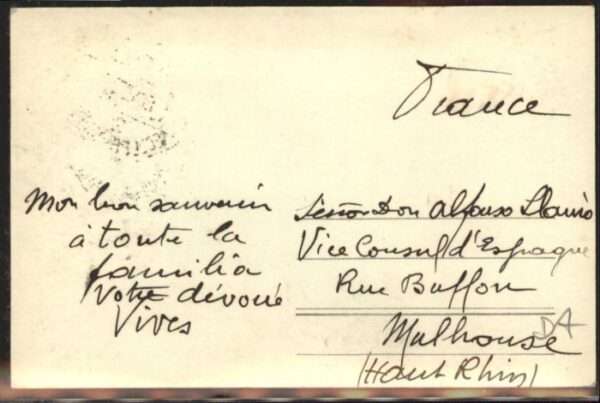 France
Mon bon souvenir
à toute la
familia
Votre dévoué
Vives
Señor Don Alfonso
Vice Consul d'Espagne
Rue Buffon
Mulhouse
(Haut Rhin)